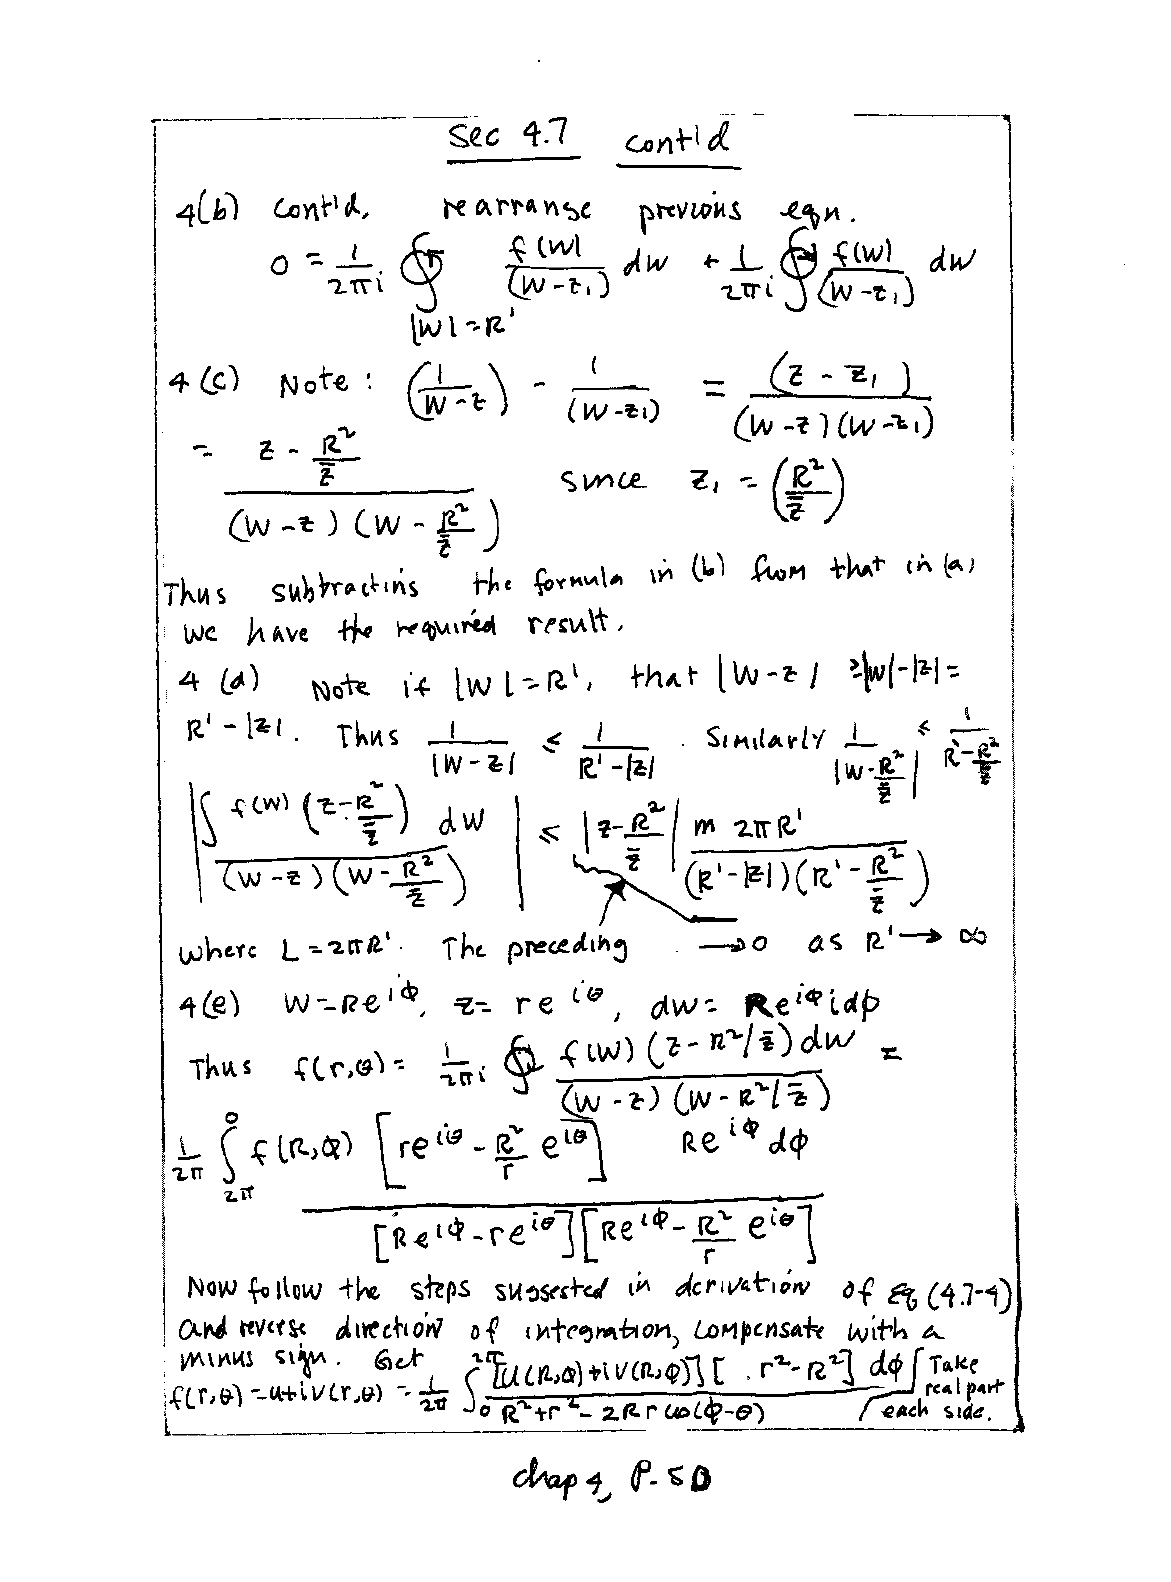 Sec 4.7 cont'd
4(b) cont'd, rearrange previous eqn.
0 = 1/(2πi) ∮_{|w|=R'} f(w)/(w-z₁) dw + 1/(2πi) ∮ f(w)/(w-z₁) dw
4(c) Note: (1/(w-z)) - 1/(w-z₁) = (z-z₁)/((w-z)(w-z₁))
= (z - R²/z̄)/((w-z)(w - R²/z̄)) since z₁ = (R²/z̄)
Thus subtracting the formula in (b) from that in (a)
we have the required result.
4(d) Note if |w|=R', that |w-z| ≥ |w|-|z| =
R'-|z|. Thus 1/|w-z| ≤ 1/(R'-|z|). Similarly 1/|w-R²/z̄| ≤ 1/(R'-R²/z̄)
|∫ f(w)(z-R²/z̄) dw/((w-z)(w-R²/z̄))| ≤ |z-R²/z̄| m 2πR'/((R'-|z|)(R'-R²/z̄))
where L=2πR'. The preceding →0 as R'→∞
4(e) w=Re^{iφ}, z=re^{iθ}, dw=Re^{iφ}idφ
Thus f(r,θ)= 1/(2πi) ∮ f(w)(z-R²/z̄)dw/((w-z)(w-R²/z̄)) =
1/(2π) ∫_{2π}^{0} f(R,φ)[re^{iθ} - R²/r e^{iθ}] Re^{iφ} dφ/([Re^{iφ}-re^{iθ}][Re^{iφ}-R²/r e^{iθ}])
Now follow the steps suggested in derivation of Eq (4.7-4)
and reverse direction of integration, compensate with a
minus sign. Get
f(r,θ)=u+iv(r,θ)= 1/(2π) ∫_{0}^{2π} [U(R,φ)+iV(R,φ)][. r²-R²] dφ/(R²+r²-2Rr cos(φ-θ)) Take
real part
each side.
chap 4, P-50